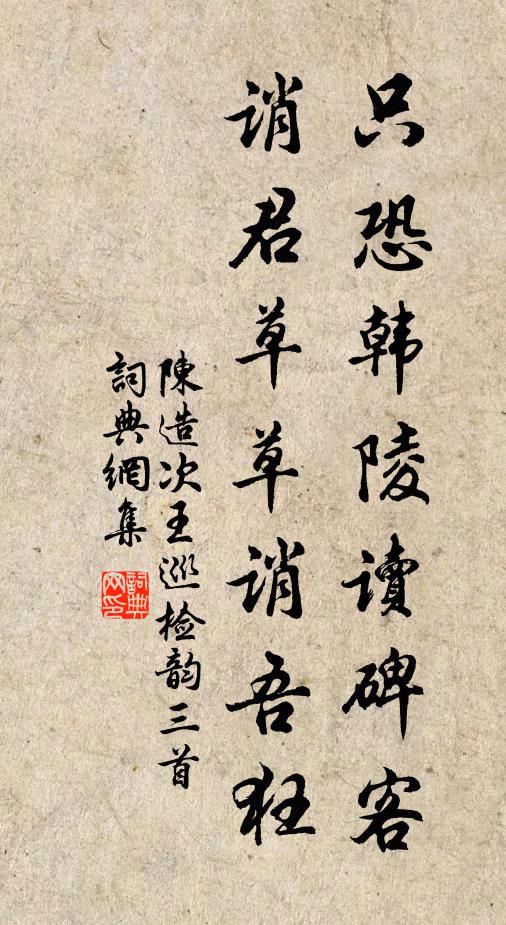 只恐韩陵读碑客
诮君草草诮吾狂
陳造次王巡检韵三首
詞典網集
詞典
网印